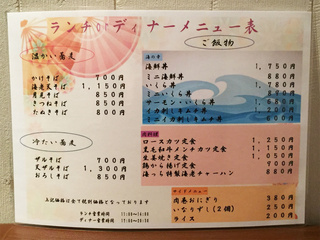 ランチorディナーメニュー表
温かい蕎麦
かけそば 700円
海老天そば 1,150円
月見そば 800円
きつねそば 800円
たぬきそば 800円
冷たい蕎麦
ザルそば 700円
天ザルそば 1,300円
おろしそば 850円
上記価格は全て税別価格となっております
ランチ営業時間
ディナー営業時間
ご飯物
海の幸
海鮮丼 1,750円
ミニ海鮮丼 880円
いくら丼
ミニいくら丼
サーモン・いくら丼
イカ刺しキムチ丼
ミニイカ刺しキムチ丼
肉料理
ロースカツ定食 1,250円
黒毛和牛メンチカツ定食 1,150円
生姜焼き定食
鶏から揚げ定食
海っち特製海老チャーハン 880円
サイドメニュー
肉巻おにぎり 380円
いなりずし(2個) 250円
ライス 200円